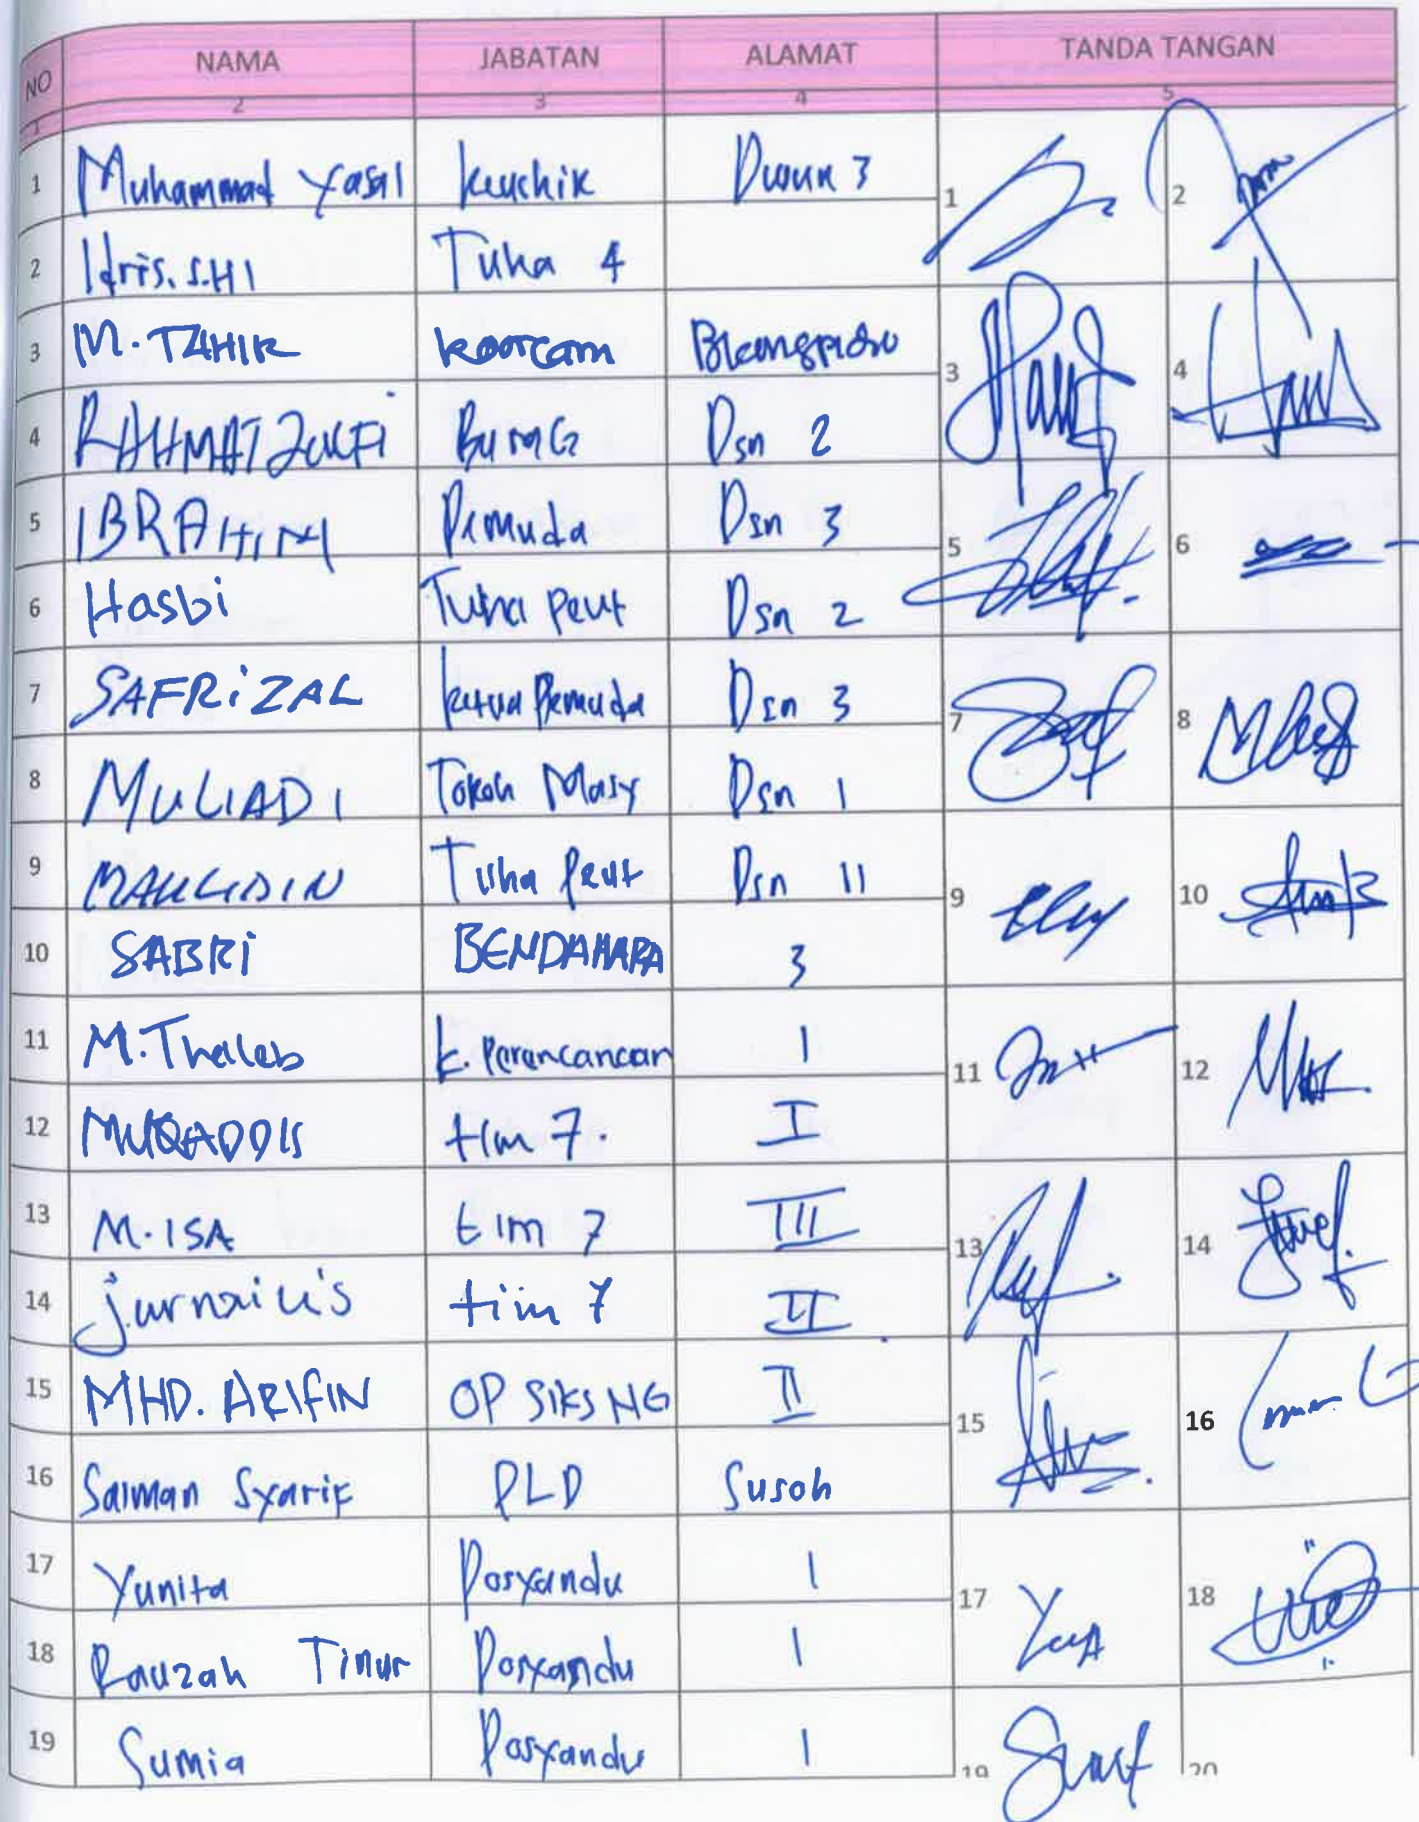 NO NAMA JABATAN ALAMAT TANDA TANGAN
1 2 3 4 5
1 Muhammad Yasal Keuchik Dusun 3 1 2
2 Idris. S.HI Tuha 4
3 M. TAHIR Koorcam Blangpidie 3 4
4 RAHMAT ZULFI Dsn 2
5 IBRAHIM Pemuda Dsn 3 5 6
6 Hasbi Tuha Peut Dsn 2
7 SAFRIZAL Ketua Pemuda Dsn 3 7 8
8 MULIADI Tokoh Masy Dsn 1
9 MAULIDIN Tuha Peut Dsn 11 9 10
10 SABRI BENDAHARA 3
11 M. Thaleb K. Perencanaan 1 11 12
12 MUQADDIS tim 7. I
13 M. ISA tim 7 III 13 14
14 Jurnailis tim 7 II
15 MHD. ARIFIN OP SIKS NG II 15 16
16 Salman Syarif PLD Susoh
17 Yunita Posyandu 1 17 18
18 Rauzah Tinur Posyandu 1
19 Sumia Posyandu 1 19 20